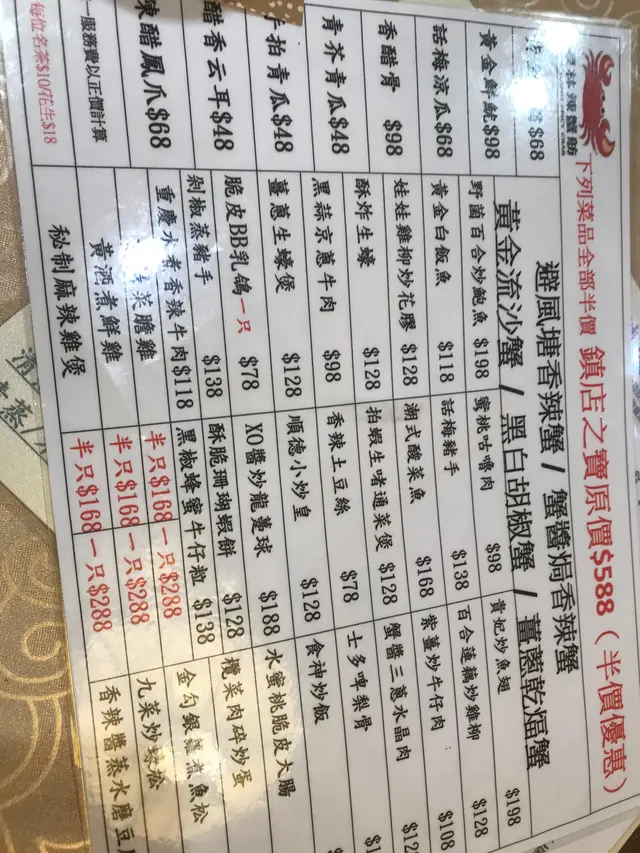 辣蟹舫
下列菜品全部半價 鎮店之寶原價$588（半價優惠）
避風塘香辣蟹 / 蟹醬焗香辣蟹
黃金流沙蟹 / 黑白胡椒蟹 / 薑蔥乾煏蟹
$68
黃金鮮魷$98
話梅涼瓜$68
香酷骨 $98
青芥青瓜$48
手拍青瓜$48
酷香云耳$48
酷鳳爪$68
一服務費以正價計算
每位名茶$10/花生$18
野菌百合炒鮑魚 $198
蜜桃咕嚕肉 $98
貴妃炒魚翅 $198
黃金白飯魚 $118
話梅豬手 $138
百合蓮藕炒雞柳 $128
娃娃雞柳炒花膠 $128
潮式酸菜魚 $168
紫薑炒牛仔肉 $108
酥炸生蠔 $128
拍蝦生啫通菜煲 $128
蟹醬三蔥水晶肉
黑蒜京蔥牛肉 $98
香辣土豆絲 $78
士多啤梨骨
薑蔥生蠔煲 $128
順德小炒皇 $128
食神炒飯
脆皮BB乳鴿一只 $78
XO醬炒龍躉球 $188
水蜜桃脆皮大腸
剁椒蒸豬手 $138
酥脆珊瑚蝦餅 $128
欖菜肉碎炒蛋
重慶水煮香辣牛肉$118
黑椒蜂蜜牛仔粒 $138
金勾銀蘿煮魚松
菜膽雞 半只$168一只$288
九菜炒 松
黃酒煮鮮雞 半只$168一只$288
香辣醬蒸水磨豆
秘制麻辣雞煲 半只$168一只$288